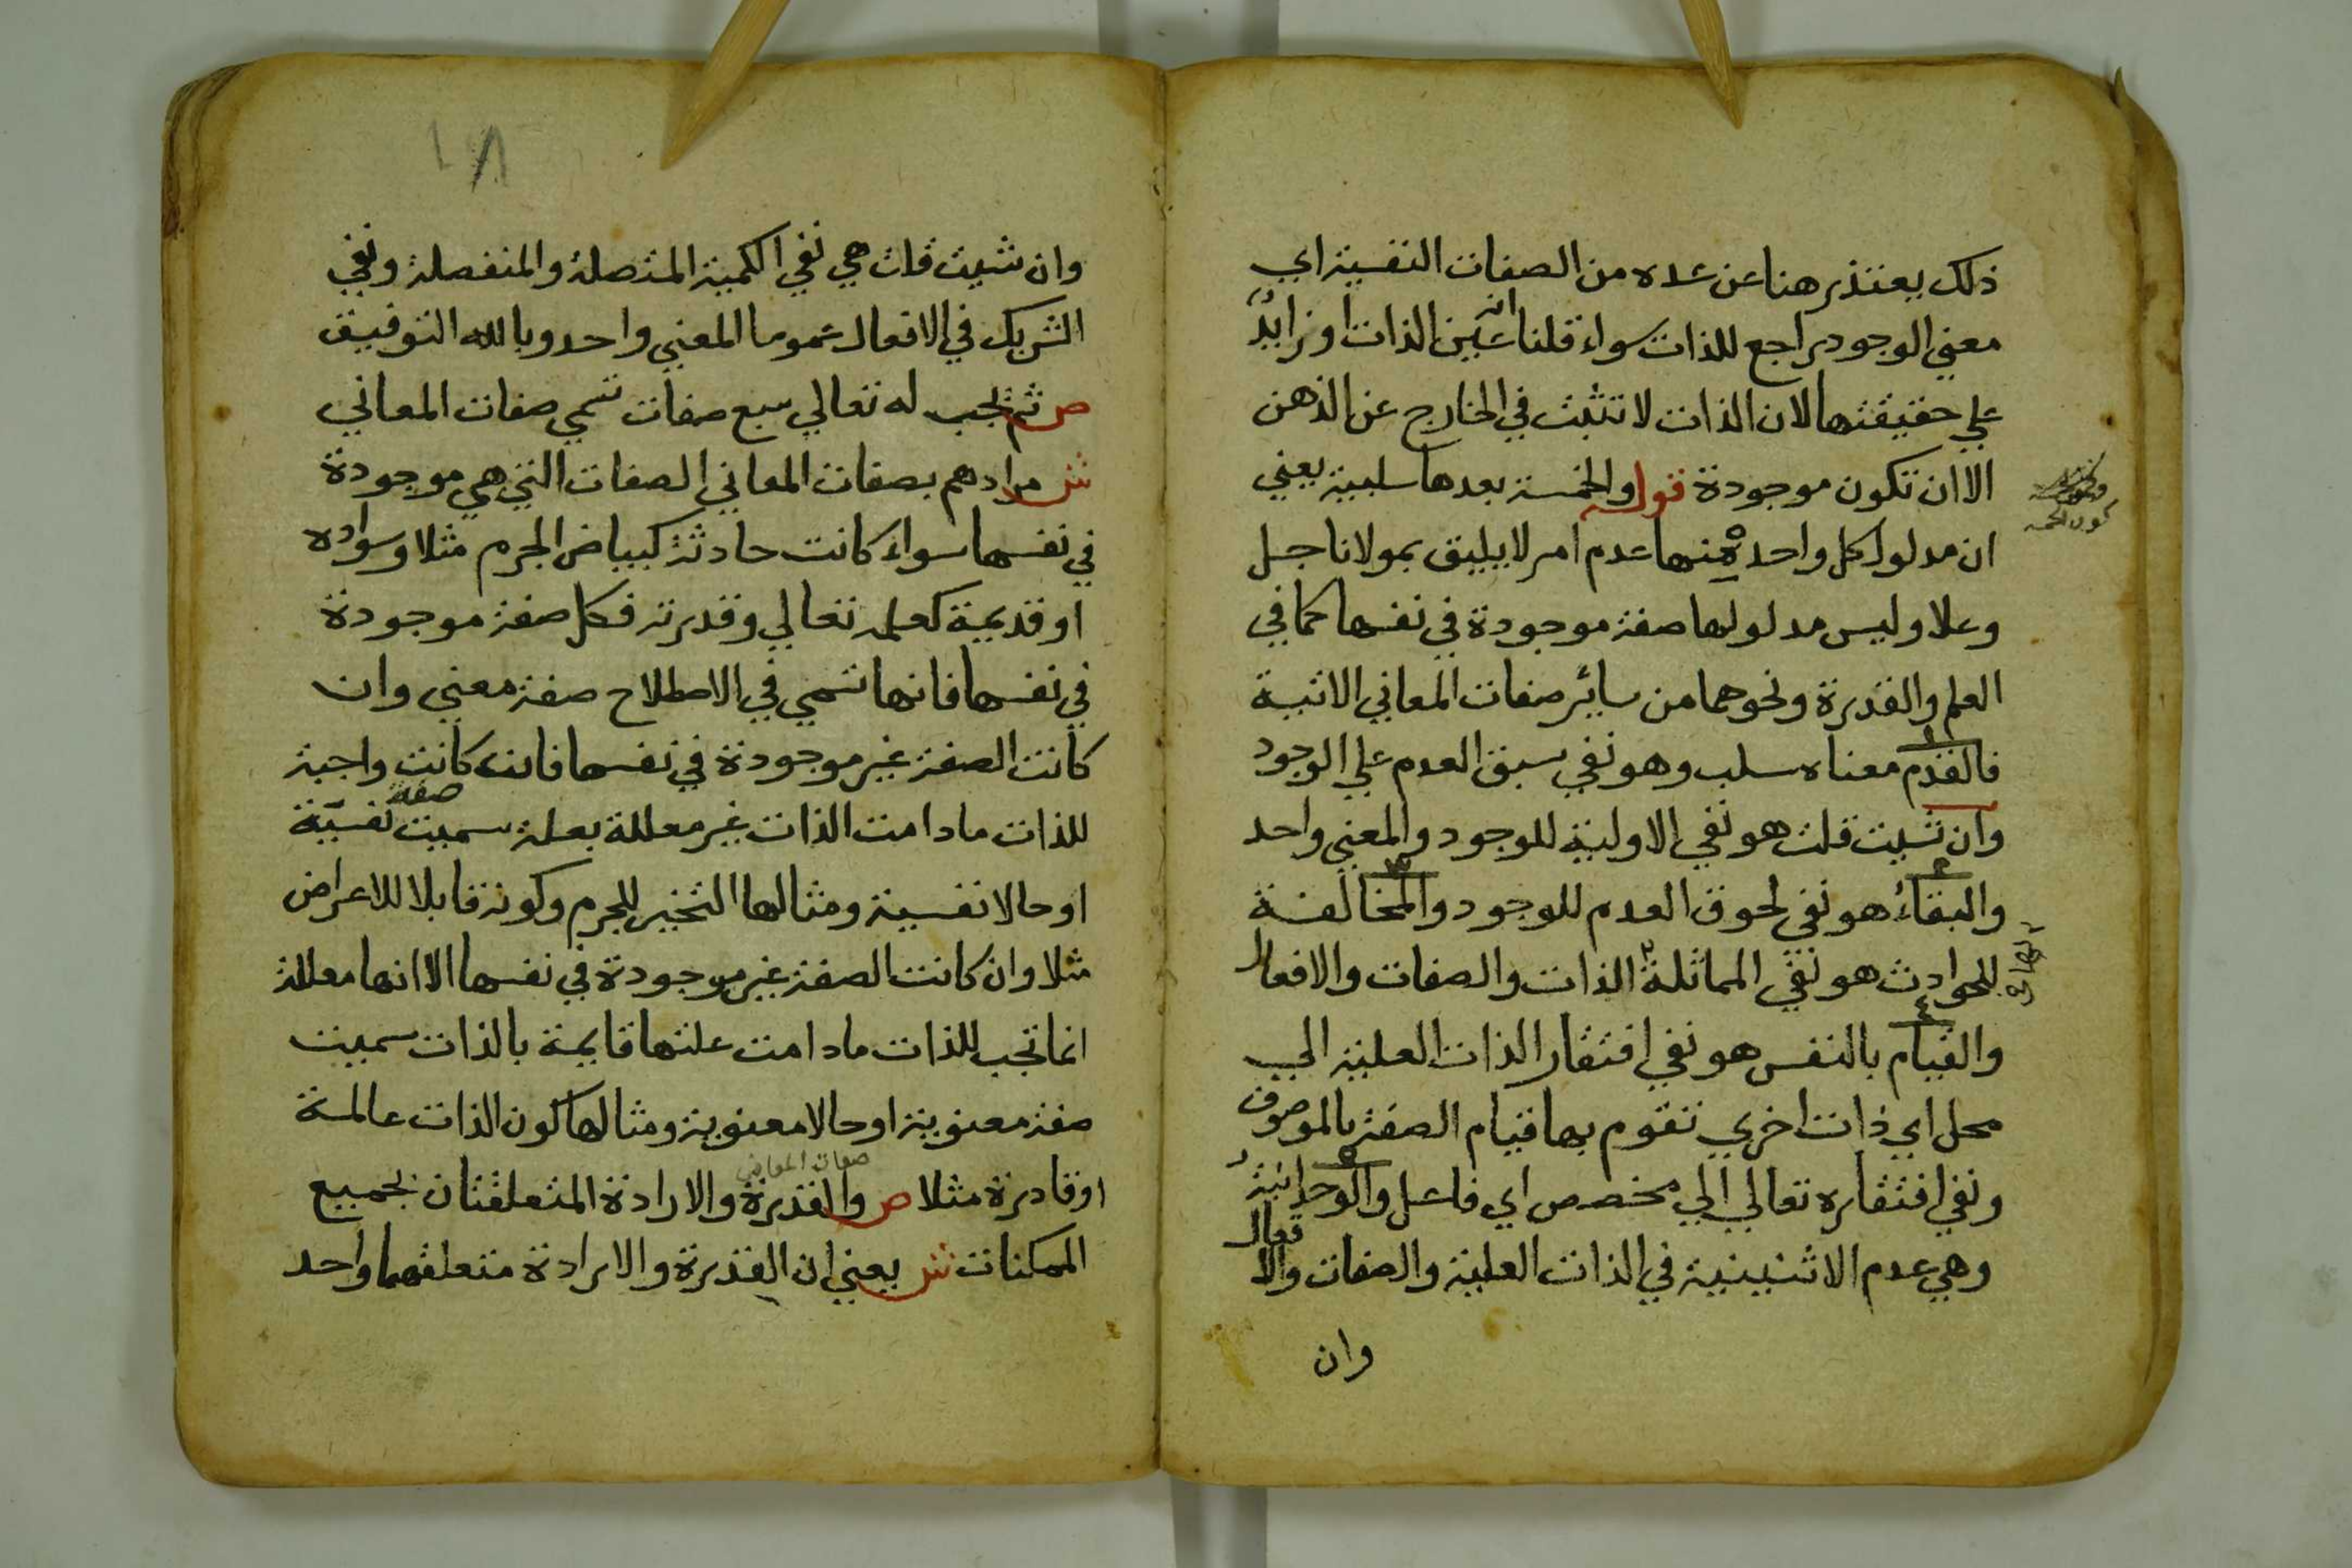 ذلك يعتذر هنا عن عده من الصفات النفسية اي
معني الوجود راجع للذات سواء قلنا انه عين الذات او زايدٌ
علي حقيقتها لان الذات لا تثبت في الخارج عن الذهن
الا ان تكون موجودة قوله والخمسة بعدها سلبية يعني
ان مدلول كل واحدة منها عدم امر لا يليق بمولانا جل
وعلا وليس مدلولها صفة موجودة في نفسها كما في
العلم والقدرة ونحوهما من سائر صفات المعاني الاتية
فالقدم معناه سلب وهو نفي سبق العدم علي الوجود
وان شيت قلت هو نفي الاولية للوجود والمعني واحد
والبقاءُ هو نفي لحوق العدم للوجود والمخالفة
للحوادث هو نفي المماثلة الذات والصفات والافعال
والقيام بالنفس هو نفي افتقار الذات العلية الي
محل اي ذات اخري تقوم بها قيام الصفة بالموصوف
ونفي افتقاره تعالي الي مخصص اي فاعل والوحدانية
وهي عدم الاثنينية في الذات العلية والصفات والافعال
وان
وان شيت قلت هي نفي الكمية المتصلة والمنفصلة ونفي
الشريك في الافعال عموما المعني واحد وبالله التوفيق
ص ثم يجب له تعالي سبع صفات تسمي صفات المعاني
ش مرادهم بصفات المعاني الصفات التي هي موجودة
في نفسها سواء كانت حادثة كبياض الجرم مثلا وسواده
او قديمة كعلمه تعالي وقدرته فكل صفة موجودة
في نفسها فانها تسمي في الاصطلاح صفة معني وان
كانت الصفة غير موجودة في نفسها فان كانت واجبة
للذات ما دامت الذات غير معللة بعلة سميت صفة نفسيّة
او حالا نفسية ومثالها التحيز للجرم وكونه قابلا للاعراض
مثلا وان كانت الصفة غير موجودة في نفسها الا انها معللة
انما تجب للذات ما دامت علتها قايمة بالذات سميت
صفة معنوية او حالا معنوية ومثالها كون الذات عالمة
او قادرة مثلا ص والقدرة والارادة المتعلقتان بجميع
صفات المعاني
الممكنات ش يعني ان القدرة والارادة متعلقهما واحد